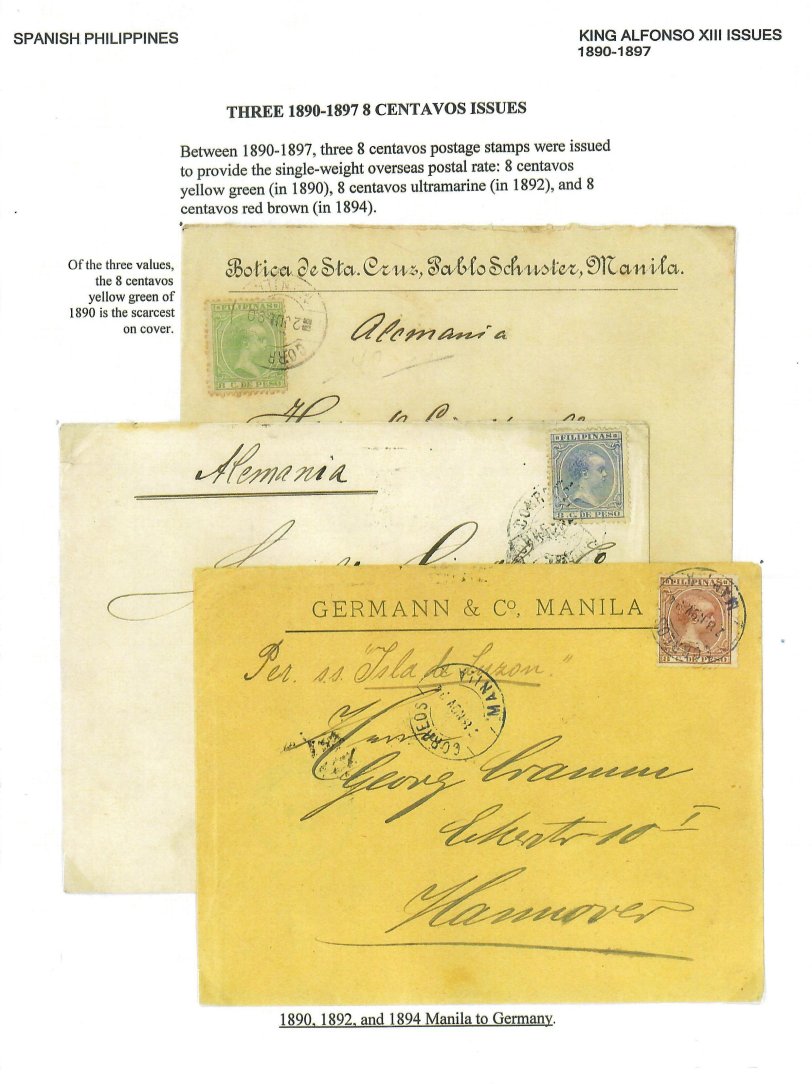 SPANISH PHILIPPINES
KING ALFONSO XIII ISSUES
1890-1897
THREE 1890-1897 8 CENTAVOS ISSUES
Between 1890-1897, three 8 centavos postage stamps were issued
to provide the single-weight overseas postal rate: 8 centavos
yellow green (in 1890), 8 centavos ultramarine (in 1892), and 8
centavos red brown (in 1894).
Of the three values,
the 8 centavos
yellow green of
1890 is the scarcest
on cover.
Botica de Sta. Cruz, Pablo Schuster, Manila.
FILIPINAS
8 C. DE PESO
CORR
2 JUL 90
Alemania
Alemania
FILIPINAS
8 C. DE PESO
GERMANN & Co, MANILA
FILIPINAS
8 C. DE PESO
Per. ss. "Isla de Luzon."
CORREOS
MANILA
Herrn
Georg Cramm
10 I
Hannover
1890, 1892, and 1894 Manila to Germany.